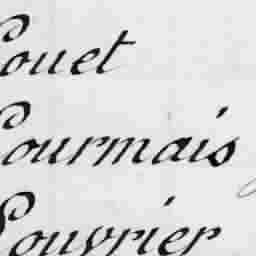 Louet
Lourmais
Louvrier